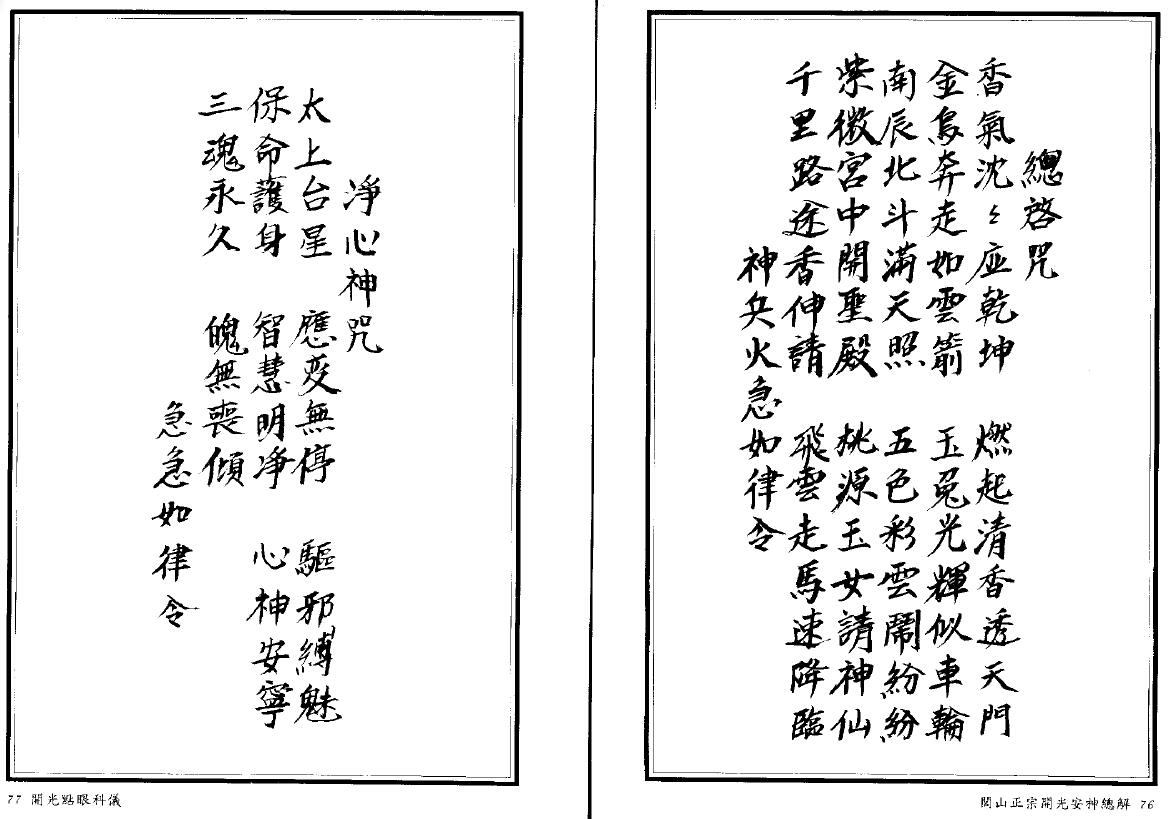 總啓咒
香氣沈々应乾坤　燃起清香透天門
金烏奔走如雲箭　玉兔光輝似車輪
南辰北斗滿天照　五色彩雲鬧紛紛
紫微宮中開聖殿　桃源玉女請神仙
千里路途香伸請　飛雲走馬速降臨
神兵火急如律令
閭山正宗開光安神總解 76
淨心神咒
太上台星　應变無停　驅邪縛魅
保命護身　智慧明淨　心神安寧
三魂永久　魄無喪傾
急急如律令
77 開光點眼科儀